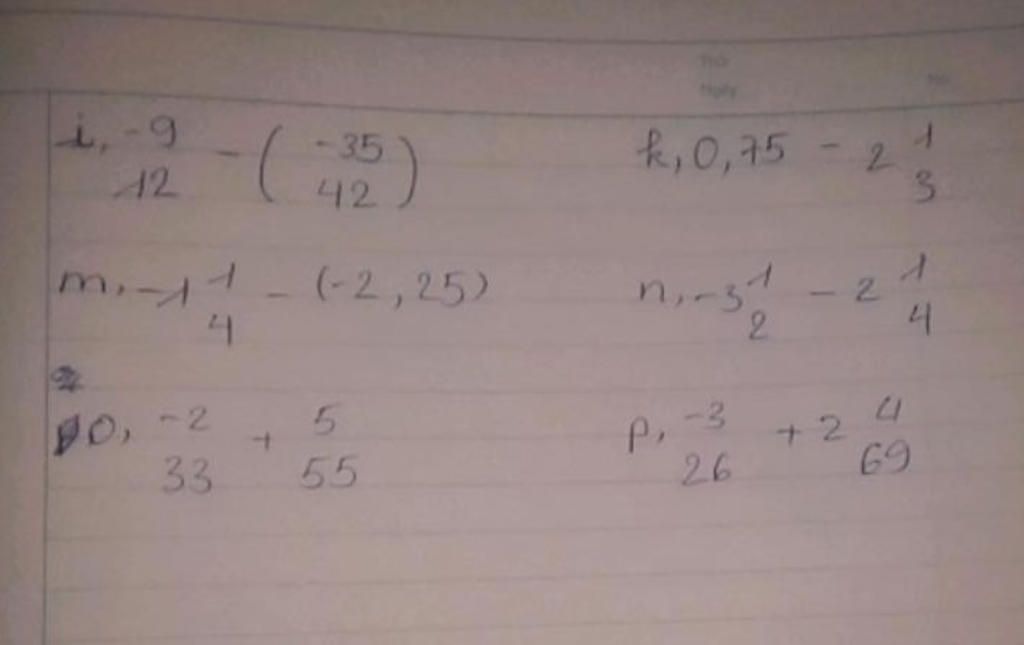 Thứ
Ngày No.
i, -9/12 - (-35/42) k, 0,75 - 2 1/3
m, -1 1/4 - (-2,25) n, -3 1/2 - 2 1/4
o, -2/33 + 5/55 p, -3/26 + 2 4/69